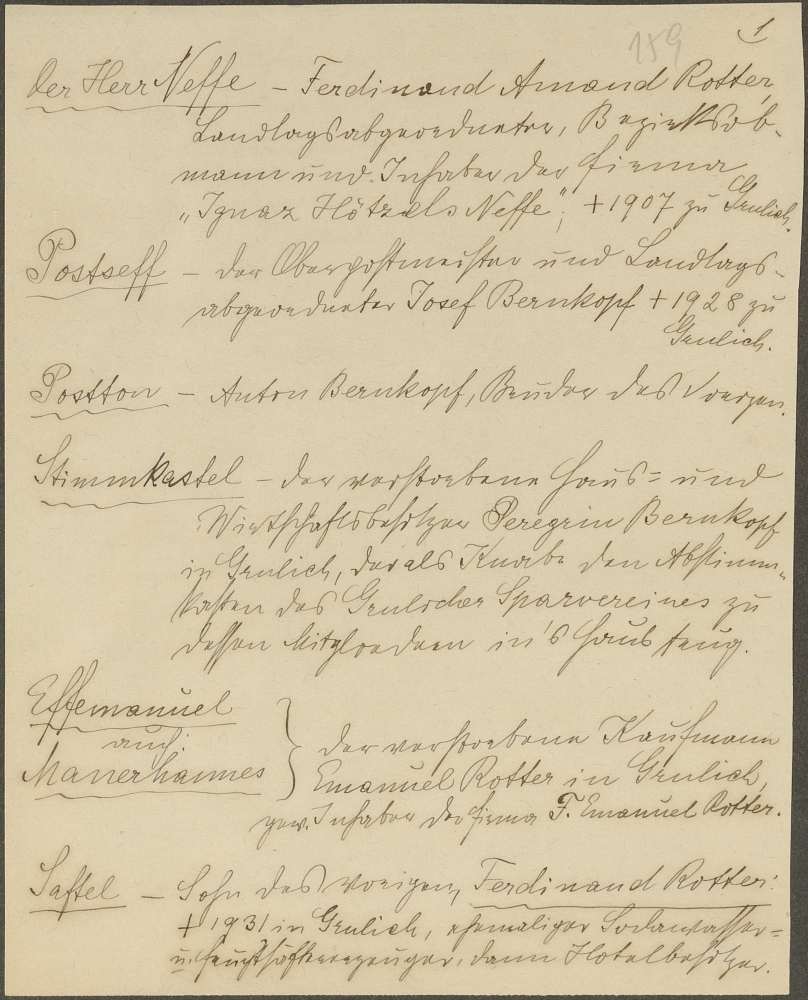 159
1
Der Herr Neffe – Ferdinand Amand Rotter,
Landtagsabgeordneter, Bezirksob-
mann und Inhaber der Firma
„Ignaz Hötzels Neffe“, + 1907 zu Grulich.
Postseff – der Oberpostmeister und Landtags-
abgeordneter Josef Bernkopf + 1928 zu
Grulich.
Postton – Anton Bernkopf, Bruder des Vorigen.
Stimmkastel – der verstorbene Haus- und
Wirtschaftsbesitzer Peregrin Bernkopf
in Grulich, der als Knabe den Abstimm-
kasten des Grulicher Sparvereines zu
dessen Mitgliedern in's Haus trug.
Effemanuel
auch:
Manerhannes
der verstorbene Kaufmann
Emanuel Rotter in Grulich,
gew. Inhaber der Firma F. Emanuel Rotter.
Saftel – Sohn des Vorigen, Ferdinand Rotter:
+ 1931 in Grulich, ehemaliger Sodawasser-
u. Fruchtsafterzeuger, dann Hotelbesitzer.